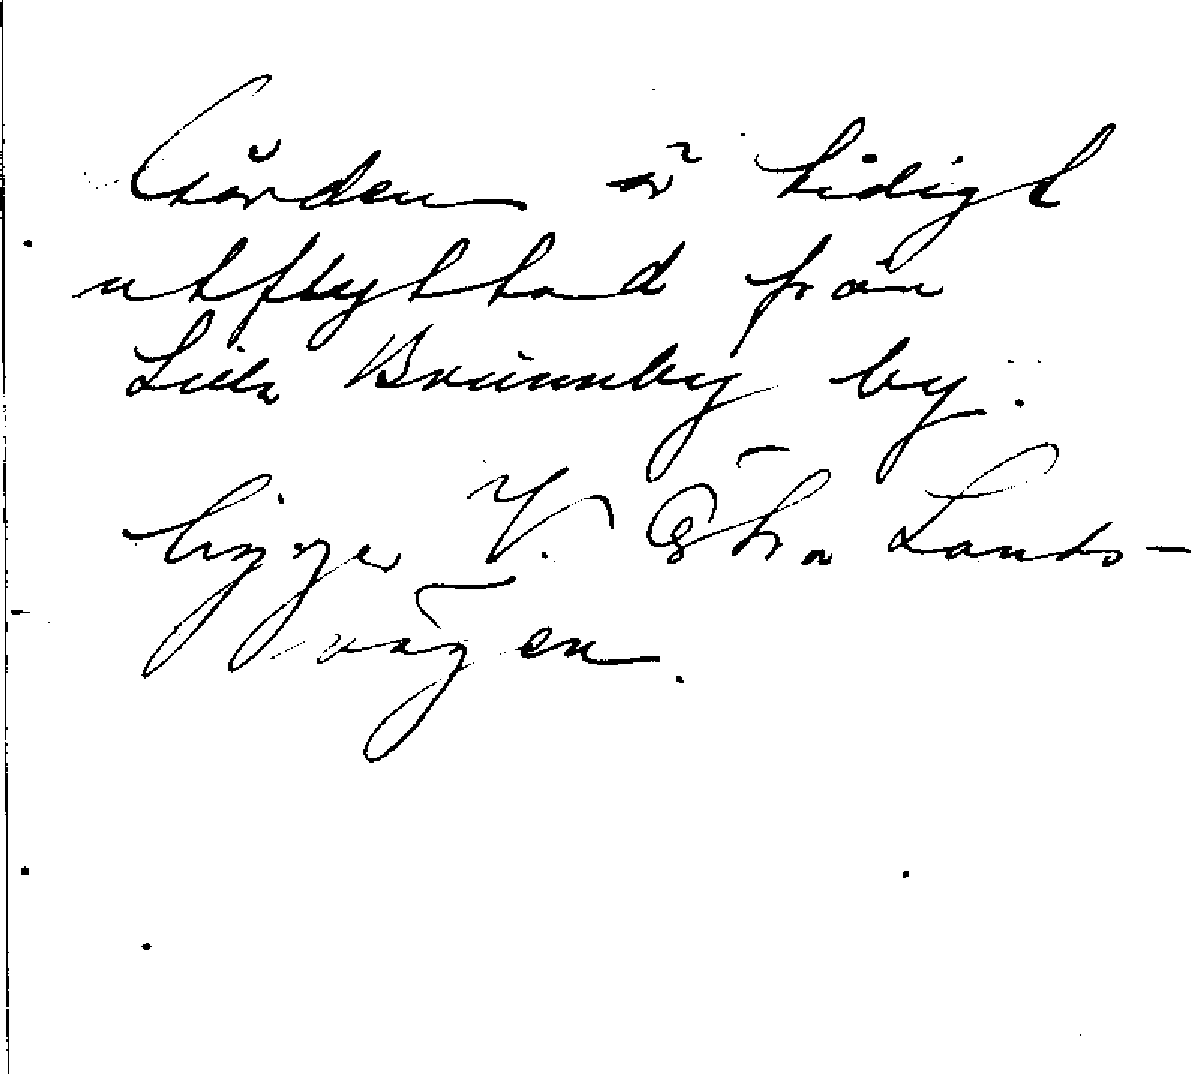 Gården är tidigt
utflyttad från
Lilla Brunnby by.
ligger V. Östra Lands-
vägen.